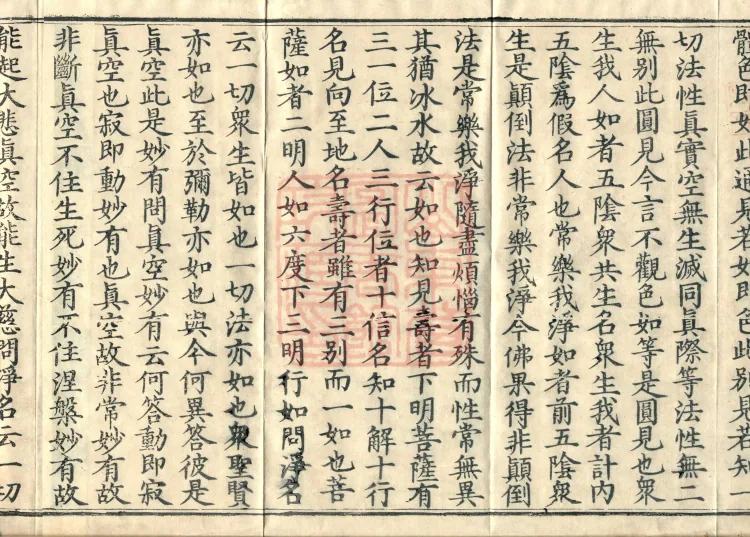 體色即如此通見若如即色此別見若知一
切法性眞實空無生滅同眞際等法性無二
無別此圓見今言不觀色如等是圓見也衆
生我人如者五陰衆共生名衆生我者計內
五陰爲假名人也常樂我淨如者前五陰衆
生是顚倒法非常樂我淨今佛果得非顚倒
法是常樂我淨隨盡煩惱有殊而性常無異
其猶冰水故云如也知見壽者下明菩薩有
三一位二人三行位者十信名知十解十行
名見向至地名壽者雖有三別而一如也菩
薩如者二明人如六度下三明行如問淨名
云一切衆生皆如也一切法亦如也衆聖賢
亦如也至於彌勒亦如也與今何異答彼是
眞空此是妙有問眞空妙有云何答動即寂
眞空也寂即動妙有也眞空故非常妙有故
非斷眞空不住生死妙有不住涅槃妙有故
能起大悲眞空故能生大慈問淨名云一切